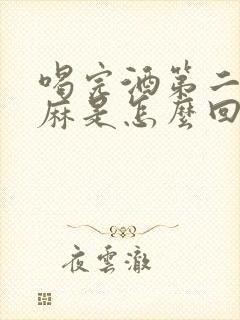 喝完酒第二
麻是怎麼回
夜雲澈